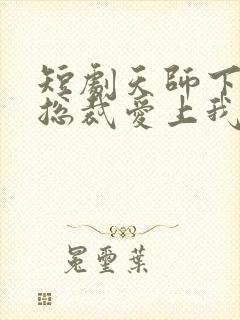 短劇天師下
總裁愛上我
冕璽葉